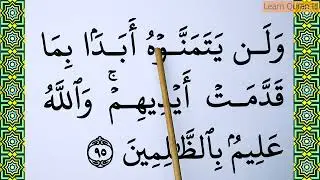 Learn Quran
وَلَن يَتَمَنَّوْهُ أَبَدًۢا بِمَا
قَدَّمَتْ أَيْدِيهِمْ ۚ وَٱللَّهُ
عَلِيمٌۢ بِٱلظَّـٰلِمِينَ ٩٥